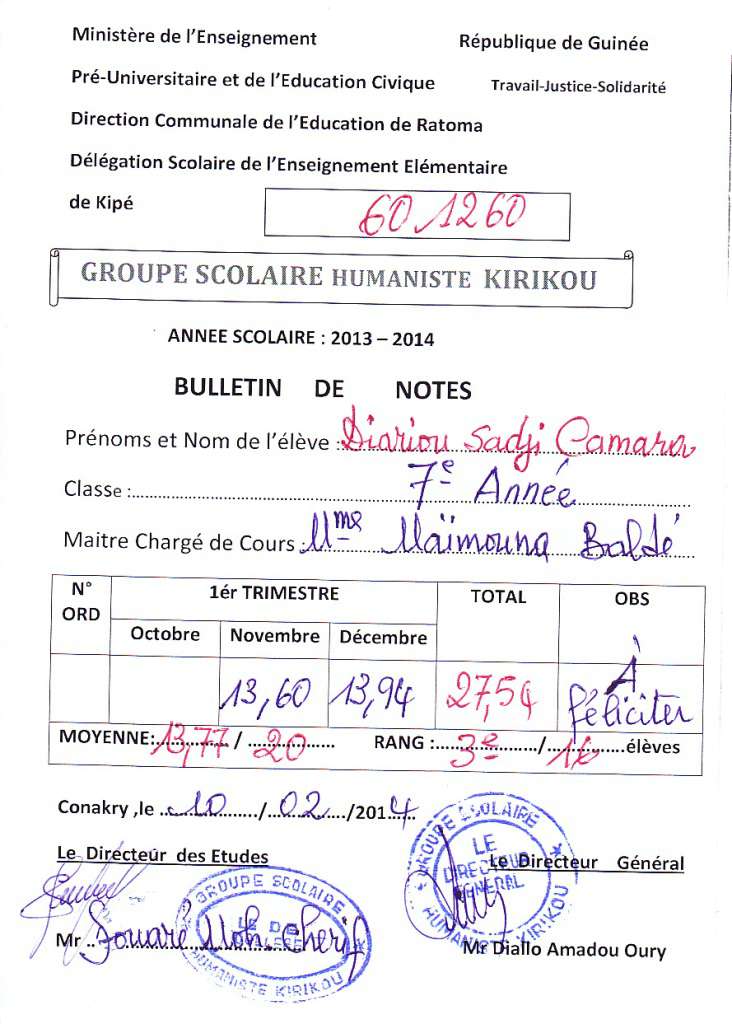 Ministère de l'Enseignement République de Guinée
Pré-Universitaire et de l'Education Civique Travail-Justice-Solidarité
Direction Communale de l'Education de Ratoma
Délégation Scolaire de l'Enseignement Elémentaire
de Kipé 601260
GROUPE SCOLAIRE HUMANISTE KIRIKOU
ANNEE SCOLAIRE : 2013 – 2014
BULLETIN DE NOTES
Prénoms et Nom de l'élève : Diariou Sadji Camara
Classe : 7e Année
Maitre Chargé de Cours : Mme Maïmouna Baldé
N° ORD 1ér TRIMESTRE TOTAL OBS
Octobre Novembre Décembre
13,60 13,94 27,54 À féliciter
MOYENNE: 13,77 / 20 RANG : 3e / 16 élèves
Conakry ,le 10 / 02 /2014
Le Directeur des Etudes Le Directeur Général
GROUPE SCOLAIRE
LE DIRECTEUR GENERAL
HUMANISTE KIRIKOU
GROUPE SCOLAIRE
HUMANISTE KIRIKOU
Mr Fouaré Moh. Cherif Mr Diallo Amadou Oury